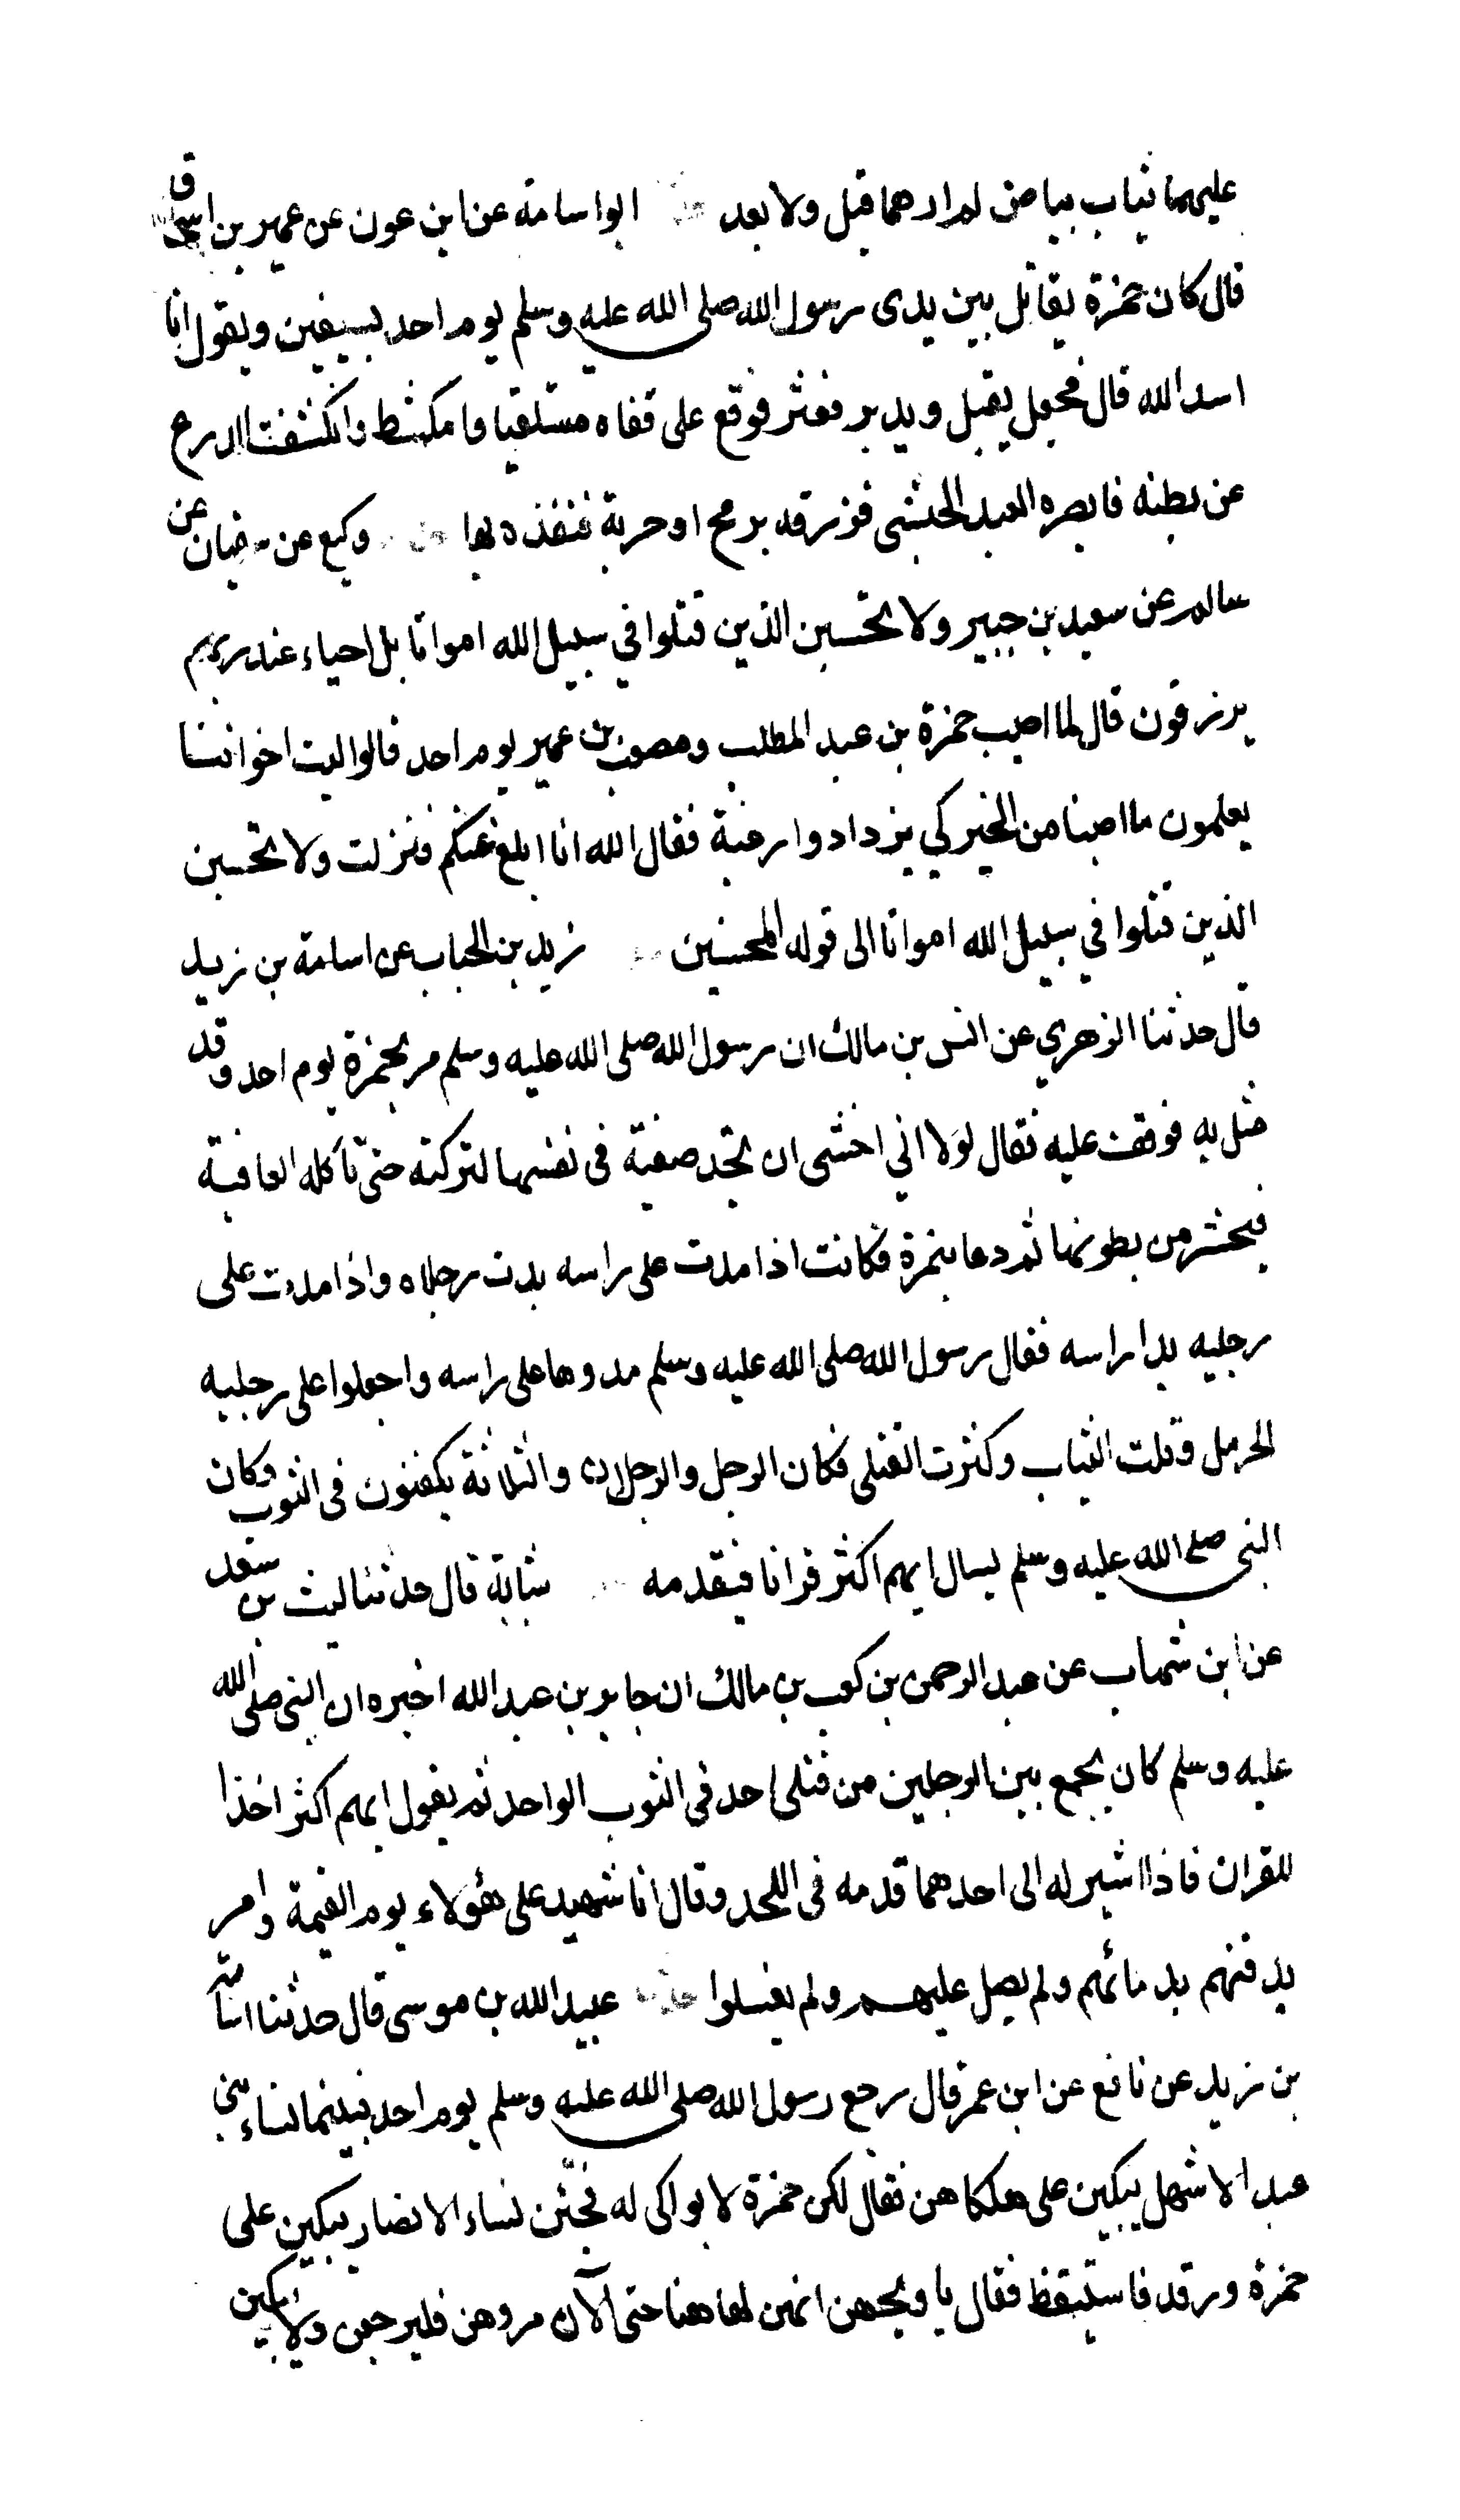 عليهما ثياب بياض لم ارهما قبل ولا بعد ابو اسامة عن ابن عون عن عمير بن اسحاق
قال كان حمزة يقاتل بين يدى رسول الله صلى الله عليه وسلم يوم احد بسيفين ويقول انا
اسد الله قال فجعل يقبل ويدبر فعثر فوقع على قفاه مستلقيا وانكشفت الدرع
عن بطنه فابصره العبد الحبشى فزرقه برمح او حربة فنفذه بها وكيع عن سفيان عن
سالم عن سعيد بن جبير ولا تحسبن الذين قتلوا في سبيل الله امواتا بل احياء عند ربهم
يرزقون قال لما اصيب حمزة بن عبد المطلب ومصعب بن عمير يوم احد قالوا ليت اخواننا
يعلمون ما اصبنا من الخير كي يزدادوا رغبة فقال الله انا ابلغ عنكم فنزلت ولا تحسبن
الذين قتلوا في سبيل الله امواتا الى قوله المحسنين زيد بن الحباب عن اسامة بن زيد
قال حدثنا الزهري عن انس بن مالك ان رسول الله صلى الله عليه وسلم مر بحمزة يوم احد وقد
مثل به فوقف عليه فقال لولا اني اخشى ان تجد صفية فى نفسها لتركته حتى تاكله العافية
فيحشر من بطونها ثم دعا بنمرة فكانت اذا مدت على راسه بدت رجلاه واذا مدت على
رجليه بدا راسه فقال رسول الله صلى الله عليه وسلم مدوها على راسه واجعلوا على رجليه
الحرمل وقلت الثياب وكثرت القتلى فكان الرجل والرجلان والثلاثة يكفنون فى الثوب وكان
النبي صلى الله عليه وسلم يسال ايهم اكثر قرانا فيقدمه شبابة قال حدثنا ليث بن سعد
عن ابن شهاب عن عبد الرحمن بن كعب بن مالك ان جابر بن عبد الله اخبره ان النبي صلى الله
عليه وسلم كان يجمع بين الرجلين من قتلى احد فى الثوب الواحد ثم يقول ايهم اكثر اخذا
للقران فاذا اشير له الى احدهما قدمه فى اللحد وقال انا شهيد على هؤلاء يوم القيمة وامر
بدفنهم بدمائهم ولم يصل عليهم ولم يغسلوا حدثنا عبيد الله بن موسى قال حدثنا اسامة
بن زيد عن نافع عن ابن عمر قال رجع رسول الله صلى الله عليه وسلم يوم احد فبينما نساء بني
عبد الاشهل يبكين على هلكاهن فقال لكن حمزة لا بواكى له فجئن نساء الانصار يبكين على
حمزة ورقد فاستيقظ فقال يا ويحهن انهن لها هنا حتى الآن مروهن فليرجعن ولا يبكين